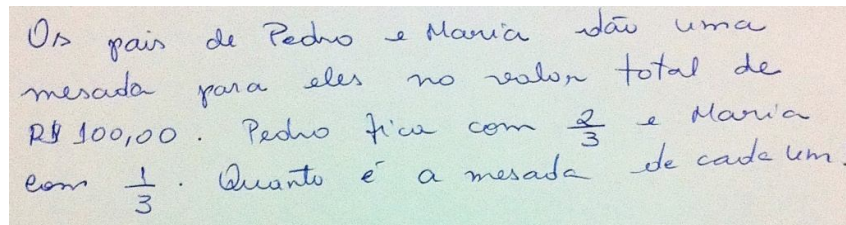 Os pais de Pedro e Maria dão uma
mesada para eles no valor total de
R$ 100,00. Pedro fica com 2/3 e Maria
com 1/3. Quanto é a mesada de cada um.